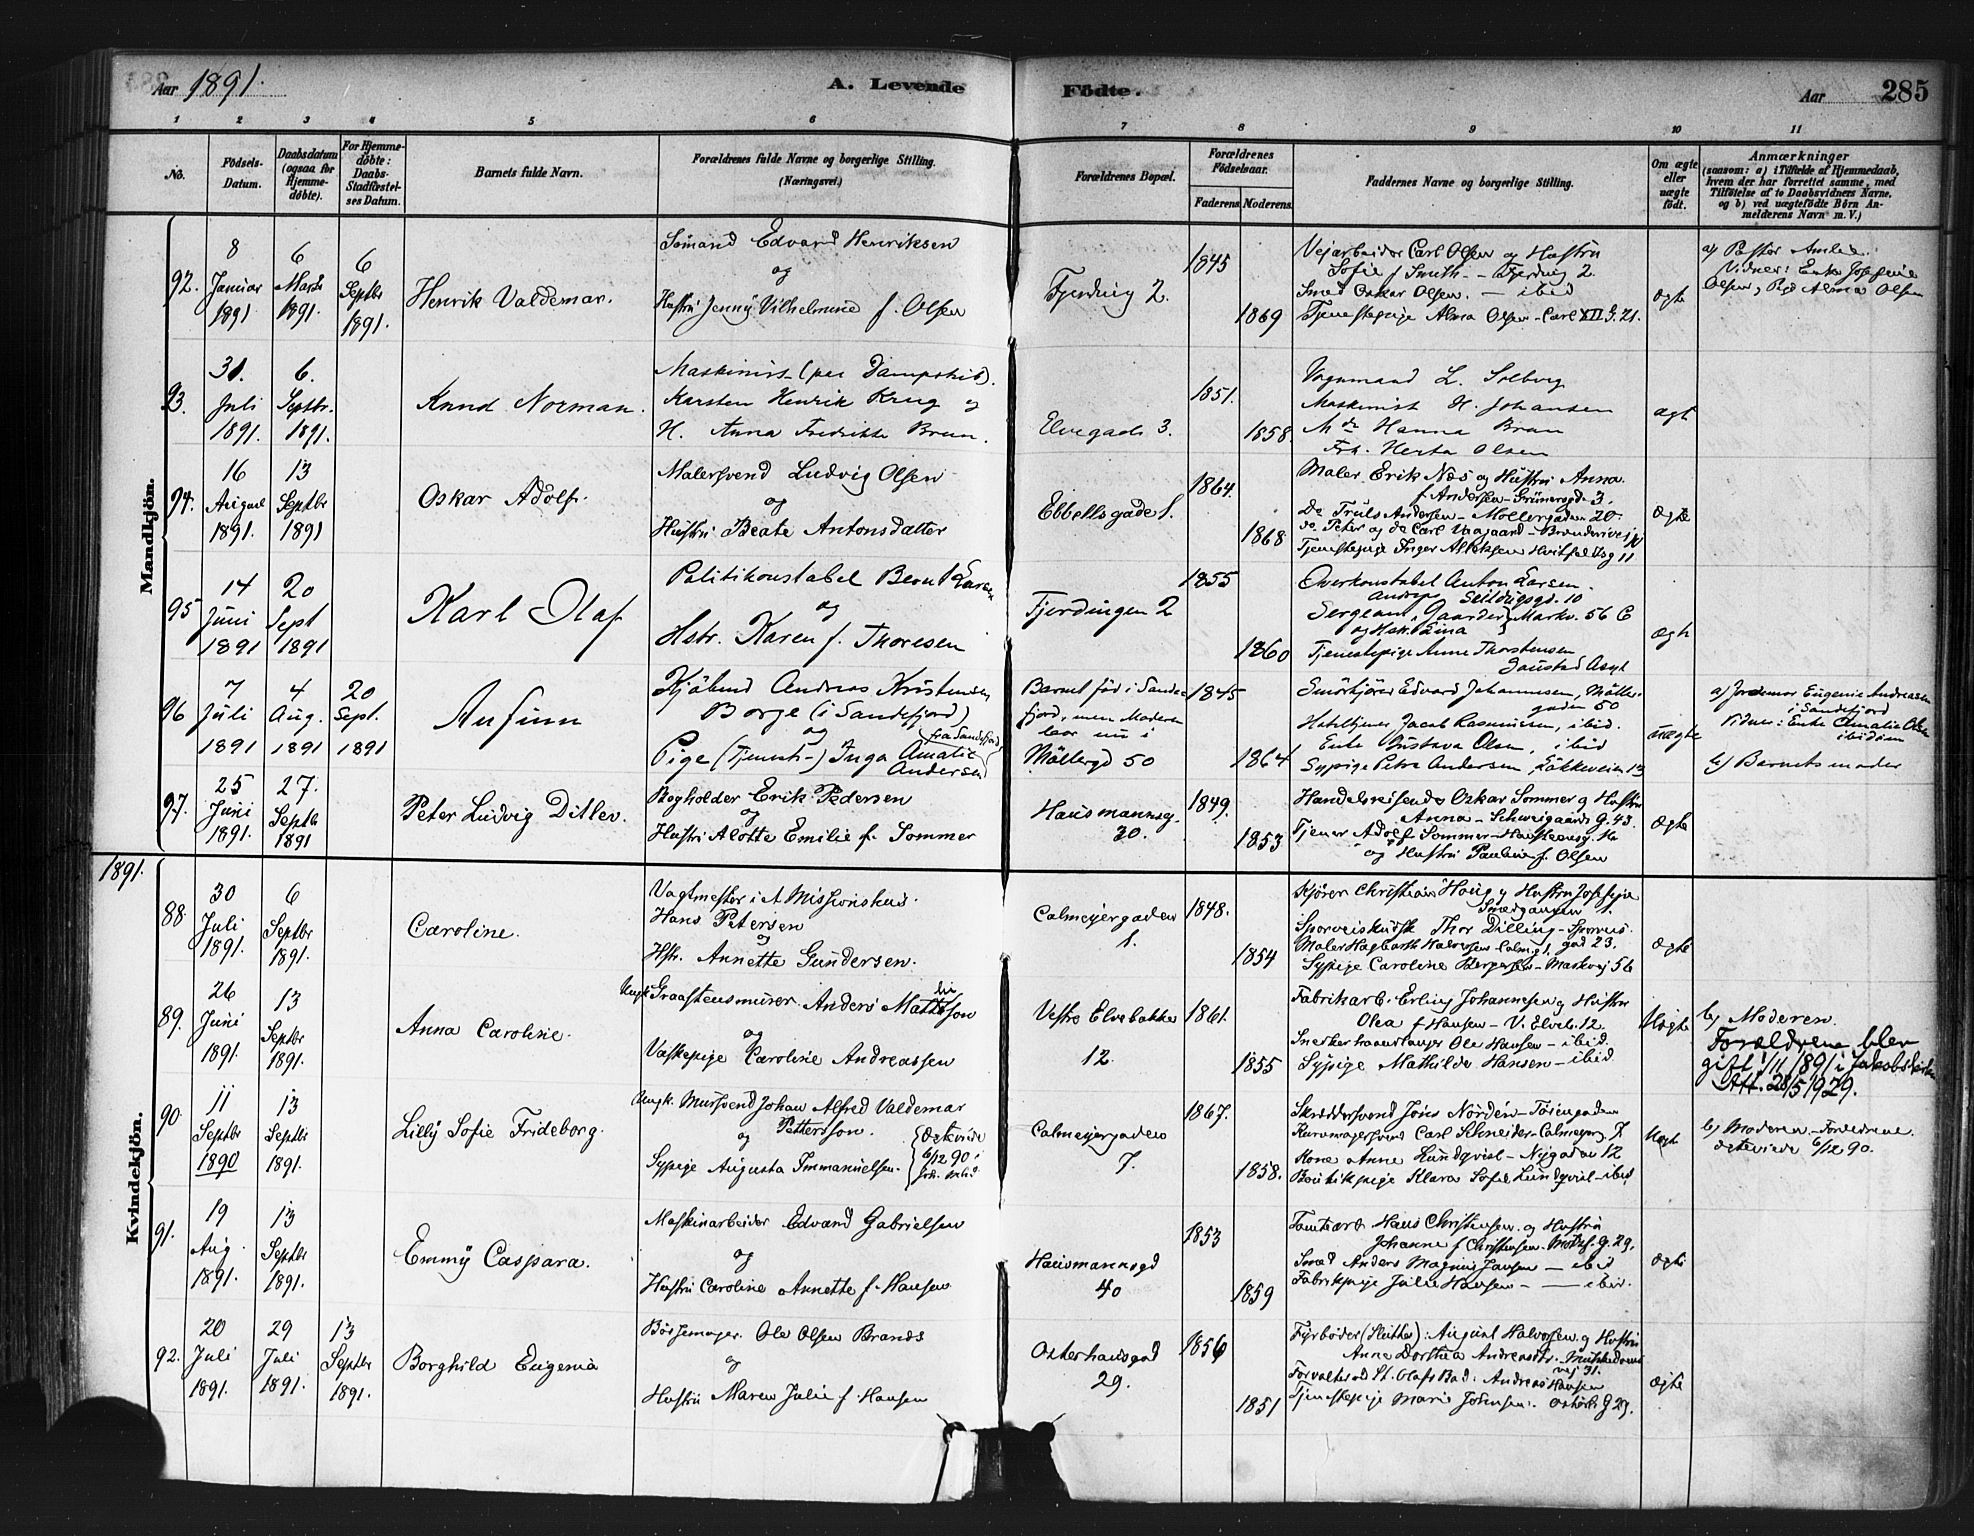 Aar 1891. A. Levende Födte. Aar 285
1 2 3 4 5 6 7 8 9 10 11
No.
Födsels-Datum.
Daabsdatum (ogsaa for Hjemme-döbte).
For Hjemme-döbte: Daabs-Stadfæstel-ses Datum.
Barnets fulde Navn.
Forældrenes fulde Navne og borgerlige Stilling. (Næringsvei.)
Forældrenes Bopæl.
Forældrenes Födselsaar.
Faderens. Moderens.
Faddernes Navne og borgerlige Stilling.
Om ægte eller uægte födt.
Anmærkninger
(saasom: a) i Tilfælde af Hjemmedaab,
hvem der har forrettet samme, med
Tilföielse af to Daabsvidners Navne,
og b) ved uægtefödte Börn An-
melderens Navn m. V.)
Mandkjön.
92. 8 Januar 1891 6 Marts 1891. 6 Septbr 1891.
Henrik Valdemar.
Sömand Edvard Henriksen
og
Hustru Jenny Vilhelmine f. Olsen
Fjerding 2.
1845
1869
Vejarbeider Carl Olsen og Hustru
Sofie f Smith - Fjerding 2
Smed Oskar Olsen. - ibid
Tjenestepige Alma Olsen - Carl XII G. 21.
ægte
a) Pastor
Vidner: Enke Josefine
Olsen, Pige Alma Olsen
93. 31. Juli 1891. 6. Septbr. 1891.
Knud Norman.
Maskinist (paa Dampskib).
Karsten Henrik Krug og
H. Anna Fredrikke Brun.
Elvegade 3.
1851.
1858.
Vognmand L. Solberg
Maskinist H. Johansen
Hanna Brun
Frk. Herta Olsen
ægt
94. 16 August 1891. 13 Septbr 1891
Oskar Adolf.
Malersvend Ludvig Olsen
og
Hustru Beate Antonsdatter
Ebbellsgade 1.
1864.
1868
Maler Erik Næs og Hustru Anna
f Andersen - Grünersgd. 3.
Do Truls Andersen - Möllergaden 20.
do. Peter og do Carl Vaagaard -
Tjenestepige Inger
ægte
95 14 Juni 1891 20 Sept 1891
Karl Olaf
Politikonstabel Bernt Larsen
og
Hstr. Karen f. Thoresen
Fjerdingen 2
1855
1860
Overkonstabel Anton Larsen
Seilduksgd. 10
Sergeant Gaarder
og Hstr. Lina } Markv. 56 C
Tjenestepige Anne Thorstensen
Gaustad Asyl
ægte
96 7 Juli 1891 4 Aug. 1891 20 Sept. 1891
Anfinn
Kjöbmd Andreas Kristensen
Borge (i Sandefjord)
og
Pige (Tjeneste-) Inga Amalie
Andersen
fra Sandefjord
Barnet föd i Sande-
fjord, men Moderen
bor nu i
Möllergd 50
1845
1864
Edvard Johannesen, Möller-
gaden 50
Jacob Rasmussen, ibid.
Enke Gustava Olsen, ibid
Sypige Petra Andersen, Lökkeveien 13
uægte
a) Jordemor Eugenie Andreasen
i Sandefjord
Vidner: Enke Amalie Olsen
ibidem
b) Barnets moder
97. 25 Juni 1891. 27. Septbr 1891
Peter Ludvig Ditlev.
Bogholder Erik Pedersen
og
Hustru Alotte Emilie f. Sommer
Hausmannsg.
30.
1849.
1853
Handelsreisende Oskar Sommer og Hustru
Anna - Schweigaards G. 43.
Tjener Adolf Sommer - Hausmannsg. 16
og Hustru Pauline f. Olsen
ægte
1891.
Kvindekjön.
88. 30 Juli 1891. 6 Septbr 1891.
Caroline.
Vagtmester i et Missionshus.
Hans Petersen
og
Hstr. Annette Gundersen.
Calmeyergaden
1.
1848.
1854
Kjörer Christian Haug og Hustru Josefine
Smedgangen 1.
Sporveiskudsk Thor Dilling - Sporveis-
gad 23.
Maler Hagbarth Halvorsen - Calmg 1.
Sypige Caroline Bergersen - Markvej 56
ægte
89. 26 Juni 1891. 13 Septbr 1891.
Anna Caroline.
Ungk. Graastensmurer Anders Mattisson
og
Vaskepige Caroline Andreassen
Vestre Elvebakke
12.
1861.
1855
Fabrikarb. Erling Johannesen og Hustru
Olea f Hansen - V. Elveb. 12
Snekkerhaandlanger Ole Hansen - ibid.
Sypige Mathilde Hansen - ibid
Uægte
b) Moderen.
Forældrene blev
gift 1/11 1891 i Jakobskirken
Att. 28/5 1929.
90. 11 Septbr 1890 13 Septbr 1891.
Lilly Sofie Frideborg.
Ungk. Mursvend Johan Alfred Valdemar
og Pettersson.
Sypige Augusta Immanuelsen.
{ ægteviede
6/12 90 i
Calmeyergaden
7.
1867.
1858.
Skræddersvend Jöns Nordén - Töiengaden
Kurvmagersvend Carl Schneider - Calmeyerg. 7
Kone Anne Lundqvist - Nygaden 12
Boutikpige Klara Sofie Lundqvist - ibid
Uægte
b) Moderen - Forældrene
ægteviede 6/12 90.
91. 19 Aug. 1891. 13 Septbr 1891.
Emmy Caspara.
Maskinarbeider Edvard Gabrielsen
og
Hustru Caroline Annette f. Hansen
Hausmannsgd
40
1853
1859
Hans Christensen og Hustru
Johanne f Christensen - G. 29.
Smed Anders Magnus Jansen - ibid
Fabrikpige Julie Hansen - ibid.
ægte
92. 20 Juli 1891. 29 Juli 1891. 13 Septbr 1891.
Borghild Eugenia
Bössemager Ole Olsen Brands
og
Hustru Maren Julie f Hansen
Osterhausgad
29.
1856
1851
Fyrböder (Slutter): August Halvorsen og Hustru
Anne Dorthea Andreasdtr.
vej 31.
Forvalter ved St. Olafs Bad: Andreas Hansen
Tjenestepige Marie Johnsen. Osterh. G 29.
ægte